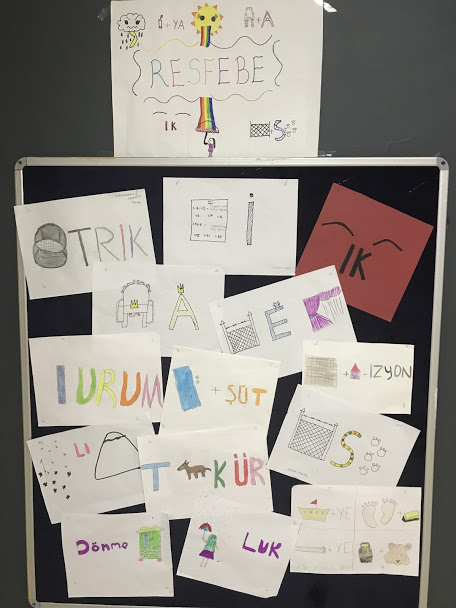 i + YA
A + A
RESFEBE
IK
S
TRIK
i
IK
A
E
I URUM
+ ŞÜT
+ IZYON
S
LI
T
KÜR
+YE +
+YE
Dönme
LUK